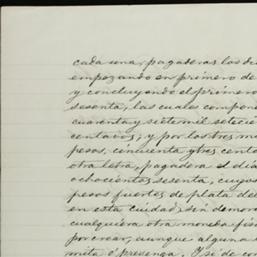 cada una, pagaderas las de
empezando en primero de
y concluyendo el primero
sesenta, las cuales compone
cuarenta y siete mil setecie
centavos; y por los tres mi
pesos, cincuenta y tres centa
otra letra, pagadera el dia
ochocientos sesenta, cuyos
pesos fuertes de plata del
en esta ciudad, sin demora
cualquiera otra moneda fis
por crear, aunque alguna
mita ó prevenga. Y si de con